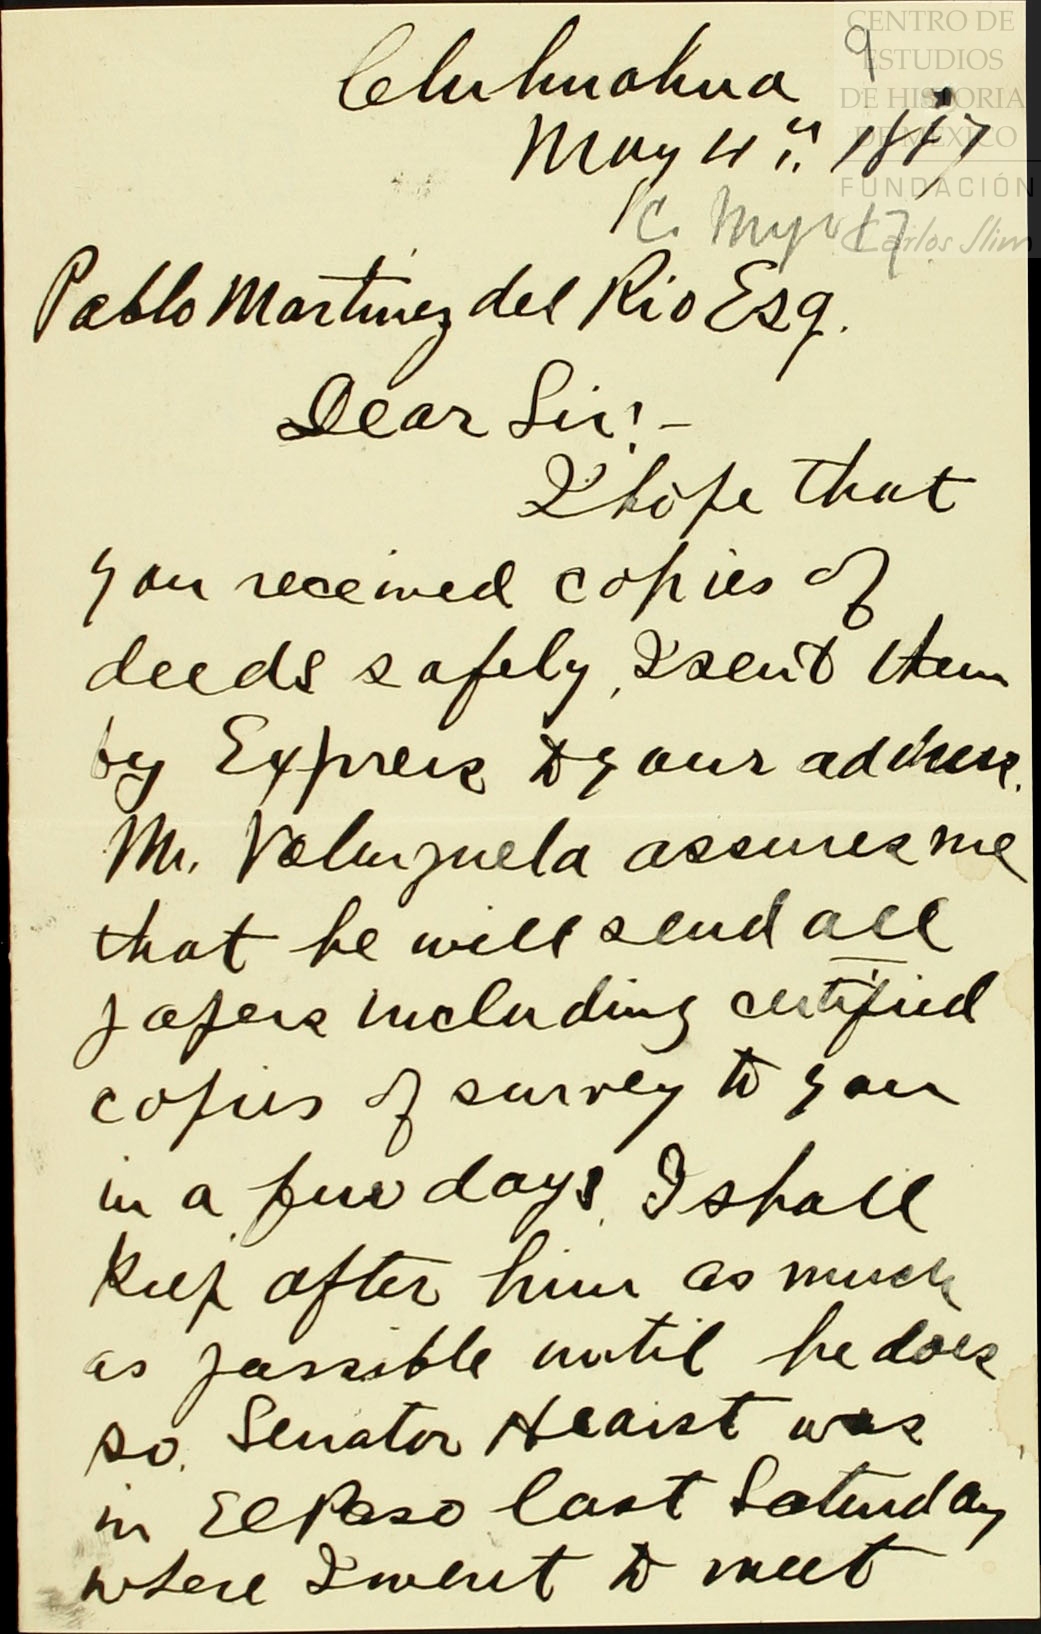 CENTRO DE
ESTUDIOS
DE HISTORIA
DE MÉXICO
FUNDACIÓN
Carlos Slim
9
Chihuahua
May 4" 1887
C. Myo 17.
Pablo Martinez del Rio Esq.
Dear Sir:-
I hope that
you received copies of
deeds safely, I sent them
by Express to your address.
Mr. Valenzuela assures me
that he will send all
papers including certified
copies of survey to you
in a few days. I shall
keep after him as much
as possible until he does
so. Senator Hearst was
in El Paso last Saturday
where I went to meet